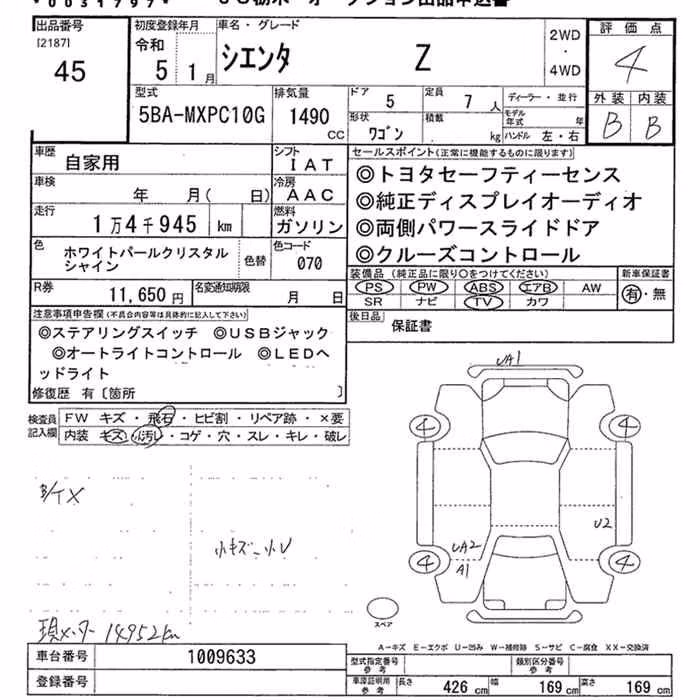 *0031797*
出品番号 [2187] 45
初度登録年月 令和 5 1月
車名・グレード シエンタ Z
2WD・4WD
評価点 4
外装 内装
B B
型式 5BA-MXPC10G
排気量 1490 CC
ドア 5
定員 7人
形状 ワゴン
積載 kg
ディーラー・並行
モデル年式 年
ハンドル 左・右
車歴 自家用
シフト IAT
車検 年 月( 日)
冷房 AAC
走行 1万4千945 km
燃料 ガソリン
色 ホワイトパールクリスタル
シャイン
色替
色コード 070
R券 11,650円
名変通知期限 月 日
セールスポイント(正常に機能するものに限ります)
◎トヨタセーフティーセンス
◎純正ディスプレイオーディオ
◎両側パワースライドドア
◎クルーズコントロール
装備品(純正品に限り○をつけてください)
新車保証書
PS PW ABS エアB AW
SR ナビ TV カワ
有・無
後日品 保証書
注意事項申告欄(不具合内容等は具体的に記入して下さい)
◎ステアリングスイッチ ◎USBジャック
◎オートライトコントロール ◎LEDヘ
ッドライト
修復歴 有〔箇所 〕
検査員記入欄
FW キズ・飛石・ヒビ割・リペア跡・×要
内装 キズ・汚レ・コゲ・穴・スレ・キレ・破レ
小キズ 小U
現メーター 14952km
UA1
4 4
U2
UA2
A1
4 4
スペア
A-キズ E-エクボ U-凹み W-補修跡 S-サビ C-腐食 XX-交換済
車台番号 1009633
登録番号
型式指定番号 参考
類別区分番号 参考
車庫証明用 参考
長さ 426cm 幅 169cm 高さ 169cm